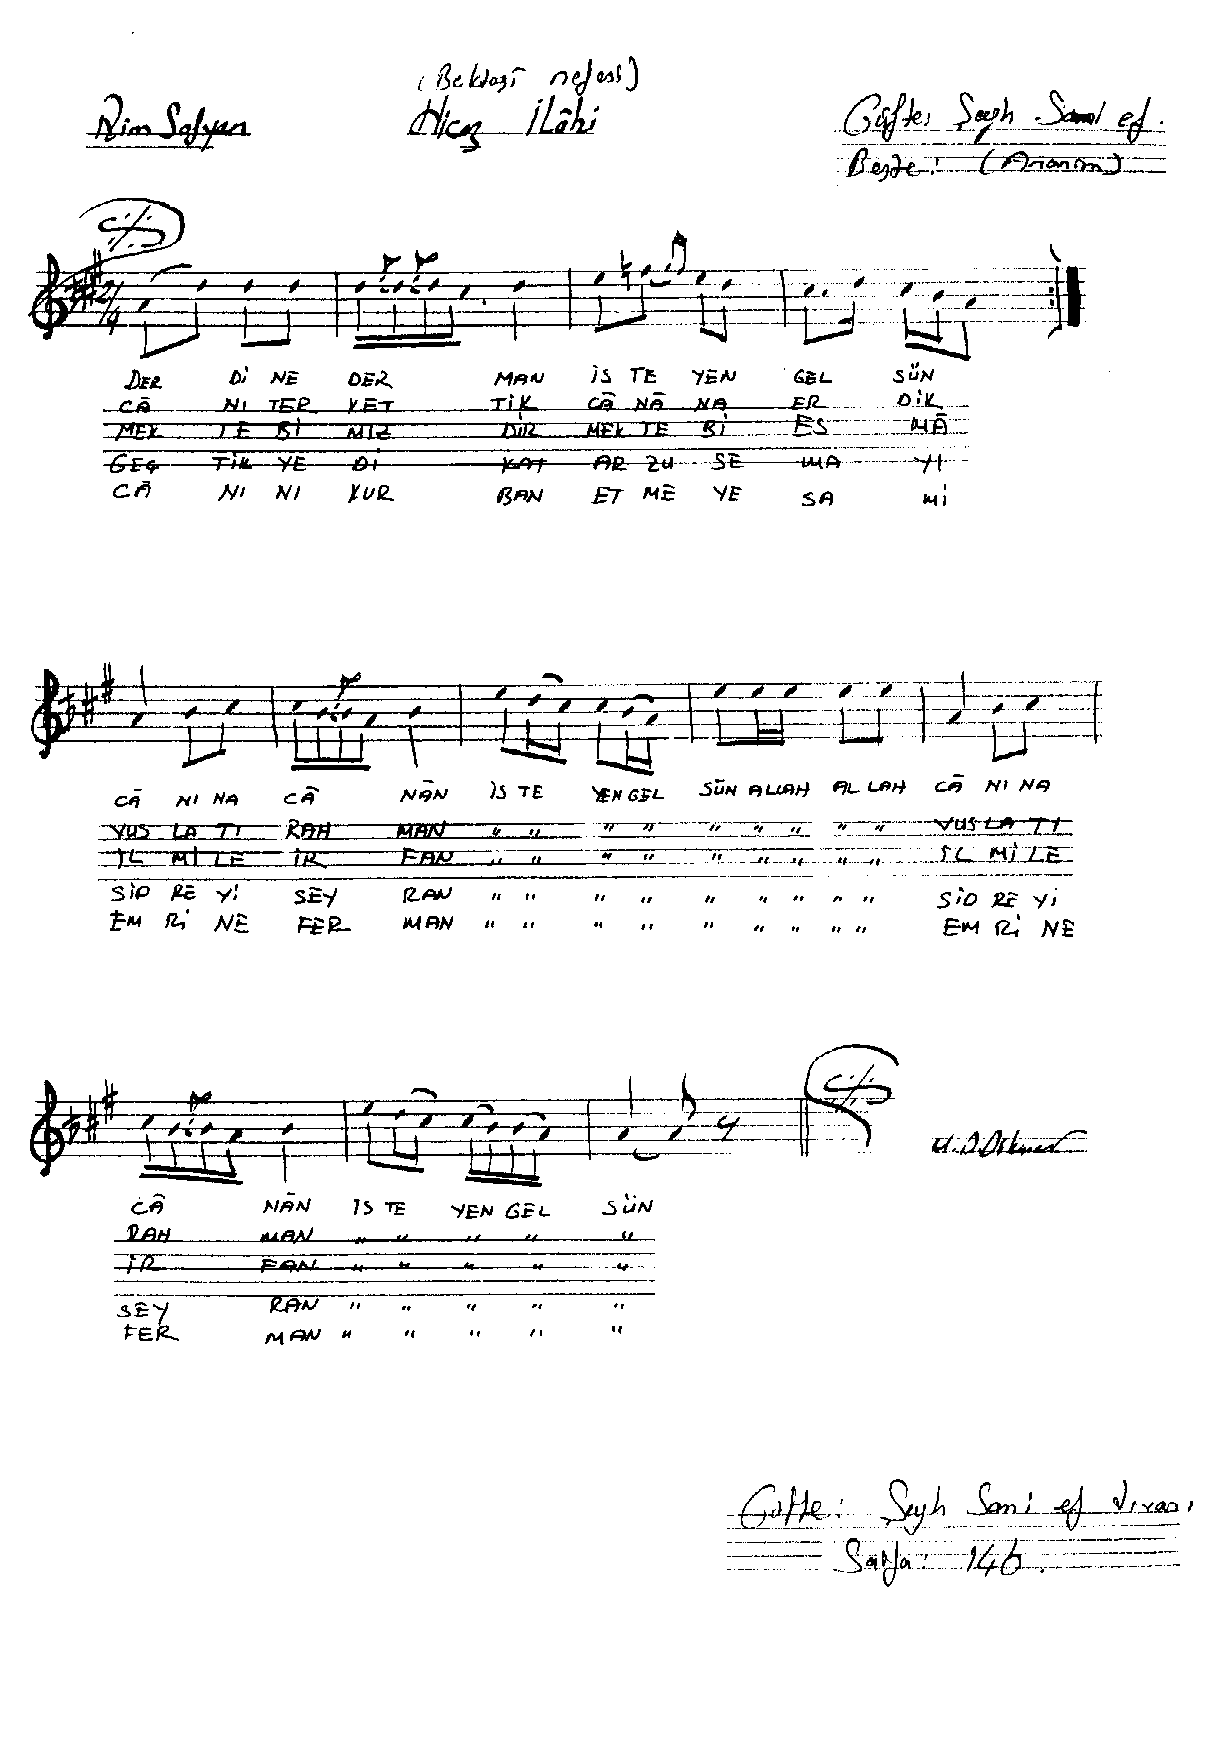 (Bektaşî nefesi)
Nim Sofyan Hicaz İlâhi Güfte: Şeyh Sami ef.
Beste: (Anonim)
2/4
DER Dİ NE DER MAN İS TE YEN GEL SÜN
CÂ NI TER KET TİK CÂ NÂ NA ER DİK
MEK TE Bİ MİZ DİR MEK TE Bİ ES MÂ
GEÇ TİK YE Dİ KAT AR ZU SE MA YI
CÂ NI NI KUR BAN ET ME YE SA Mİ
CÂ NI NA CÂ NÂN İS TE YEN GEL SÜN ALLAH AL LAH CÂ NI NA
VUS LA TI RAH MAN " " " " " " " " " VUS LA TI
İL Mİ LE İR FAN " " " " " " " " " İL Mİ LE
SİD RE Yİ SEY RAN " " " " " " " " " SİD RE Yİ
EM Rİ NE FER MAN " " " " " " " " " EM Rİ NE
CÂ NÂN İS TE YEN GEL SÜN
RAH MAN " " " " "
İR FAN " " " " "
SEY RAN " " " " "
FER MAN " " " " "
Güfte: Şeyh Sami ef divanı
Sayfa: 146.